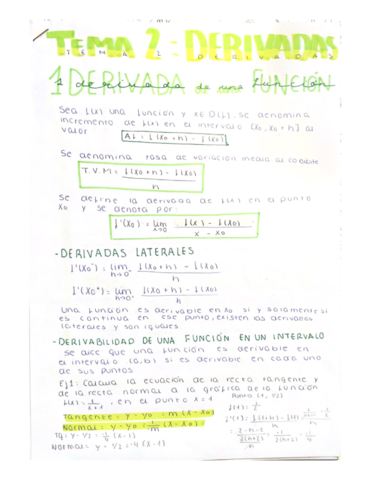 TEMA 2: DERIVADAS
TEMA 2 DERIVADAS
1 DERIVADA de una FUNCIÓN
Sea f(x) una función y x₀ ∈ D(f), se denomina
incremento de f(x) en el intervalo [x₀, x₀+h] al
valor Δf = f(x₀+h) - f(x₀)
Se denomina tasa de variación media al cociente
T.V.M = f(x₀+h) - f(x₀) / h
Se define la derivada de f(x) en el punto
x₀ y se denota por:
f'(x₀) = lim f(x) - f(x₀) / x - x₀
- DERIVADAS LATERALES
f'(x₀⁻) = lim h→0⁻ f(x₀+h) - f(x₀) / h
f'(x₀⁺) = lim h→0⁺ f(x₀+h) - f(x₀) / h
una función es derivable en x₀ si y solamente si
es continua en ese punto, existen las derivadas
laterales y son iguales
- DERIVABILIDAD DE UNA FUNCIÓN EN UN INTERVALO
Se dice que una función es derivable en
el intervalo (a,b) si es derivable en cada uno
de sus puntos
Ej1: Calcula la ecuación de la recta tangente y
de la recta normal a la gráfica de la función
f(x) = 1/x+1, en el punto x=1
Punto (1, 1/2)
Tangente = y - y₀ = m (x - x₀)
Normal = y - y₀ = 1/m (x - x₀)
Normal = y - 1/2 = 4 (x - 1)